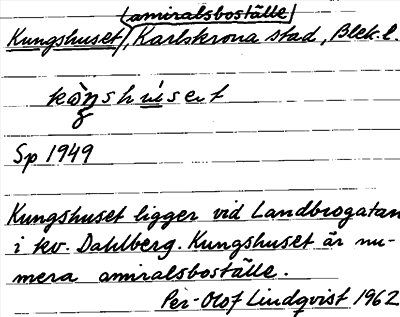 amiralsboställe
Kungshuset, Karlskrona stad, Blek. l.
Sp 1949
Kungshuset ligger vid Landbrogatan
i kv. Dahlberg. Kungshuset är nu-
mera amiralsboställe.
Per-Olof Lindqvist 1962